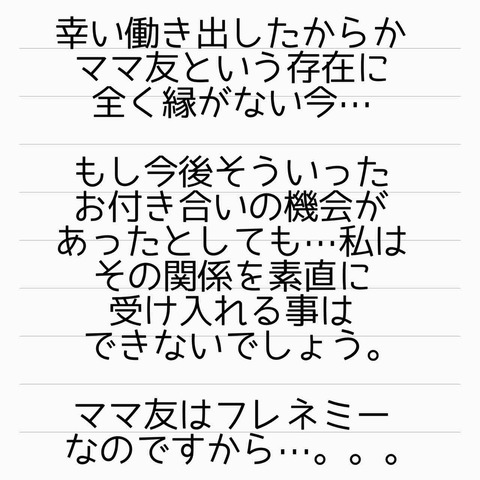 幸い働き出したからか
ママ友という存在に
全く縁がない今…
もし今後そういった
お付き合いの機会が
あったとしても…私は
その関係を素直に
受け入れる事は
できないでしょう。
ママ友はフレネミー
なのですから…。。。